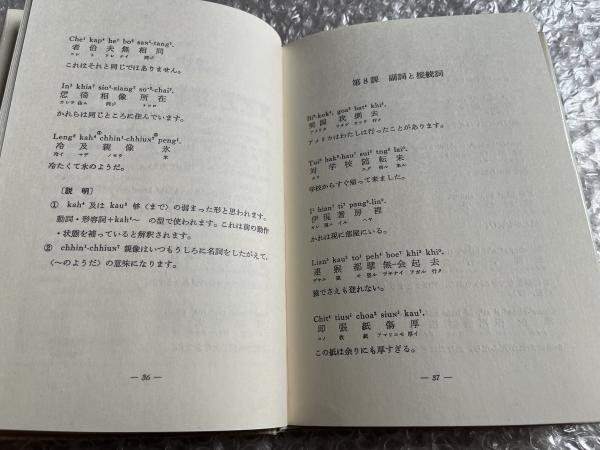 Che¹ kap⁴ he¹ bo⁵ saɴ¹-tang⁵.
者 佮 夫 無 相 同
コレ ト アレ ナイ 同ジ
これはそれと同じではありません。
In¹ khia⁷ siɴ¹-siang⁷ so²-chai⁷.
同ジ トコロ
かれらは同じところに住んでいます。
Leng² kah⁴ chhin¹-chhiuɴ⁷ peng¹.
①
②
冷 及 親 像 氷
冷イ マデ ノヨウ 氷
冷たくて氷のようだ。
〔説 明〕
① kah⁴ 及は kau³ 够〈まで〉の弱まった形と思われます。
動詞・形容詞＋kah⁴〜 の型で使われます。これは前の動作
・状態を補っていると解釈されます。
② chhin¹-chhiuɴ⁷ 親像はいつもうしろに名詞をしたがえて、
〈〜のようだ〉の意味になります。
— 36 —
第8課 副詞と接続詞
Bi²-kok⁴, goa² bat⁴ khi³.
美国 我 捌 去
アメリカ ワタシ カツテ 行ク
アメリカはわたしは行ったことがあります。
Tui³ hak⁸-hau⁷ sui⁵ tng² lai⁵.
対 学 校 随 転 来
学校からすぐ帰って来ました。
I¹ hian⁷ ti⁷ pang⁵-lin².
伊 現 著 房 裡
カレ 現ニ イル ヘヤ
かれは現に部屋にいる。
Lian⁵ kau⁵ to¹ peh⁴ boe⁷ khi² khi³.
連 猴 都 擘 無-会 起 去
デサエ 猿 モ 登ル デキナイ アガル 行ク
猿でさえも登れない。
Chit⁴ tiuɴ¹ choa² siuɴ¹ kau⁷.
即 張 紙 傷 厚
コノ 枚 紙 アマリニモ 厚イ
この紙は余りにも厚すぎる。
— 37 —